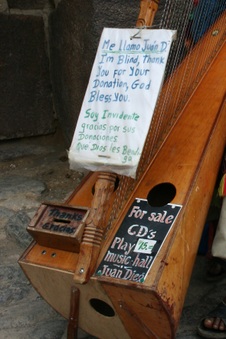 Me llamo Juan D
I'm Blind, Thank
You for Your
Donation, God
Bless You.
Soy Invidente
gracias por sus
Donaciones
Que Dios les Bendi
ga
Thanks
Gracias
For sale
CD's
Play 15.-
music-hall
Juan Diego